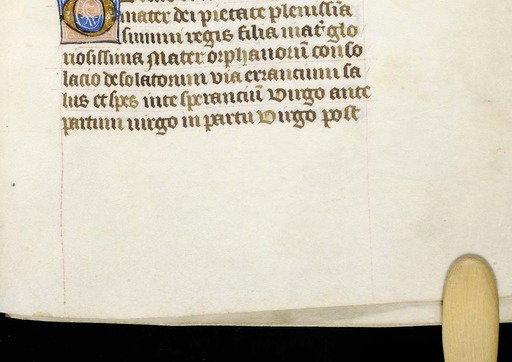 mater dei pietate plenissīa
summi regis filia mat᷑ glo
riosissima Mater orphanorū conso
lacio desolatorum via errancium sa
lus et spes in te speranciū Virgo ante
partum uirgo in partu Virgo post